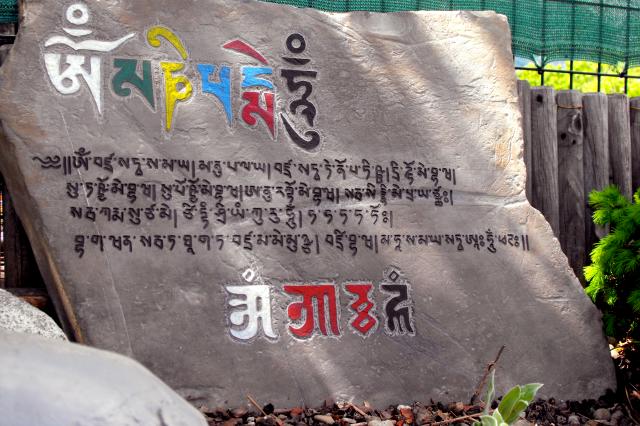 ཨོཾ་མ་ཎི་པདྨེ་ཧཱུྃ
༄༅།།ཨོཾ་བཛྲ་སཏྭ་ས་མ་ཡ། མ་ནུ་པ་ལ་ཡ། བཛྲ་སཏྭ་ཏེ་ནོ་པ་ཏིཥྛ། དྲི་ཌྷོ་མེ་བྷ་ཝ།
སུ་ཏ་ཥྱོ་མེ་བྷ་ཝ། སུ་པོ་ཥྱོ་མེ་བྷ་ཝ། ཨ་ནུ་རཀྟོ་མེ་བྷ་ཝ། སརྦ་སིདྡྷི་མེ་པྲ་ཡ་ཙྪཿ།
སརྦ་ཀརྨ་སུ་ཙ་མེ། ཙིཏྟཾ་ཤྲི་ཡཾ་ཀུ་རུ་ཧཱུྃ། ཧ་ཧ་ཧ་ཧ་ཧོཿ།
བྷ་ག་ཝན་ སརྦ་ཏ་ཐཱ་ག་ཏ་བཛྲ་མ་མེ་མུཉྩ། བཛྲི་བྷ་ཝ། མ་ཧཱ་ས་མ་ཡ་སཏྭ་ཨཱཿ་ཧཱུྃ་ཕཊཿ།།